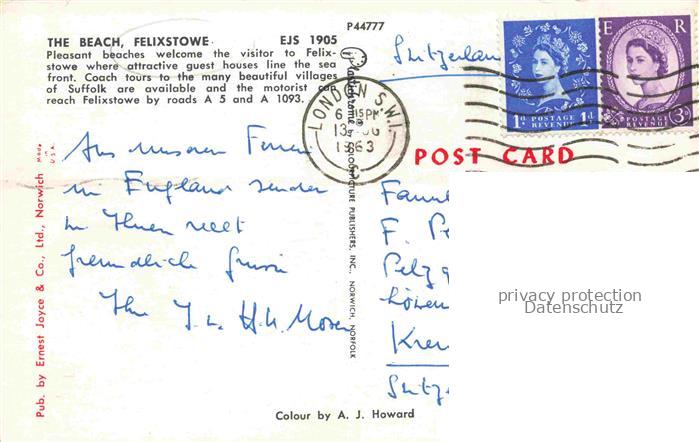 P44777
THE BEACH, FELIXSTOWE EJS 1905
Pleasant beaches welcome the visitor to Felix-
stowe where attractive guest houses line the sea
front. Coach tours to the many beautiful villages
of Suffolk are available and the motorist can
reach Felixstowe by roads A 5 and A 1093.
Switzerland
LONDON S.W.1.
6 15PM
1963
E R
1D POSTAGE REVENUE 1D
POSTAGE REVENUE 3D
POST CARD
Aus unseren Ferien
in England senden
wir Ihnen recht
freundliche Grüsse
Ihre
H.
Moser
F. Pe
Pelzg
Löwen
Kreu
Switz
privacy protection
Datenschutz
Pub. by Ernest Joyce & Co., Ltd., Norwich
PUBLISHERS, INC., NORWICH, NORFOLK
Colour by A. J. Howard